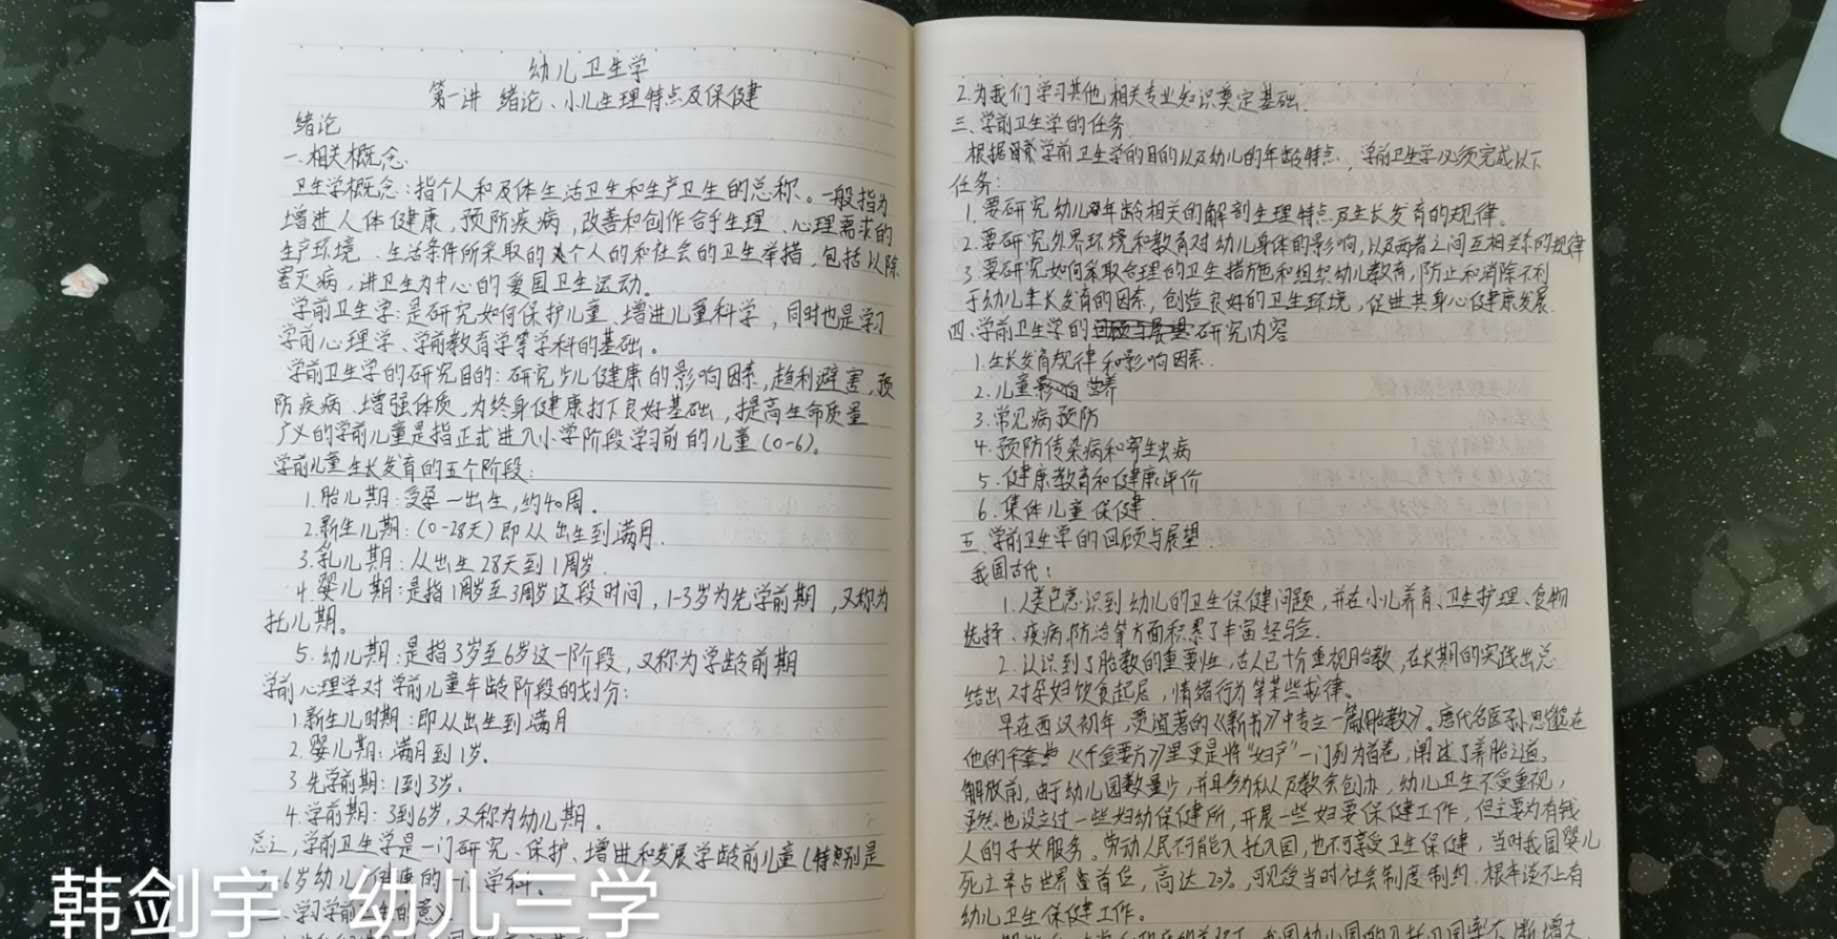 幼儿卫生学
第一讲 绪论、小儿生理特点及保健
绪论
一.相关概念.
卫生学概念:指个人和及体生活卫生和生产卫生的总称。一般指为
增进人体健康,预防疾病,改善和创作合乎生理、心理需求的
生产环境、生活条件所采取的个人的和社会的卫生举措,包括以除
害灭病,讲卫生为中心的爱国卫生运动。
学前卫生学:是研究如何保护儿童、增进儿童科学,同时也是学习
学前心理学、学前教育学等学科的基础。
学前卫生学的研究目的:研究少儿健康的影响因素,趋利避害,预
防疾病、增强体质,为终身健康打下良好基础,提高生命质量
广义的学前儿童是指正式进入小学阶段学习前的儿童(0-6)。
学前儿童生长发育的五个阶段:
1.胎儿期:受孕一出生,约40周.
2.新生儿期:(0-28天)即从出生到满月.
3.乳儿期:从出生28天到1周岁.
4.婴儿期:是指1周岁至3周岁这段时间,1-3岁为先学前期,又称为
托儿期。
5.幼儿期:是指3岁至6岁这一阶段,又称为学龄前期
学前心理学对学前儿童年龄阶段的划分:
1.新生儿时期:即从出生到满月
2.婴儿期:满月到1岁.
3.先学前期:1到3岁.
4.学前期:3到6岁,又称为幼儿期.
总之,学前卫生学是一门研究、保护、增进和发展学龄前儿童(特别是
3-6岁幼儿)健康的一门学科.
二.学习学前卫生的意义
韩剑宇 幼儿三学
2.为我们学习其他相关专业知识奠定基础.
三.学前卫生学的任务.
根据学前卫生学的目的以及幼儿的年龄特点,学前卫生学必须完成以下
任务:
1.要研究幼儿年龄相关的解剖生理特点及生长发育的规律。
2.要研究外界环境和教育对幼儿身体的影响,以及两者之间互相关系的规律
3.要研究如何采取合理的卫生措施和组织幼儿教育,防止和消除不利
于幼儿生长发育的因素,创造良好的卫生环境,促进其身心健康发展.
四.学前卫生学的研究内容
1.生长发育规律和影响因素.
2.儿童营养
3.常见病预防
4.预防传染病和寄生虫病
5.健康教育和健康评价
6.集体儿童保健.
五.学前卫生学的回顾与展望.
我国古代:
1.人类已意识到幼儿的卫生保健问题,并在小儿养育、卫生护理、食物
选择、疾病防治等方面积累了丰富经验.
2.认识到了胎教的重要性,古人已十分重视胎教,在长期的实践出总
结出对孕妇饮食起居,情绪行为等某些戒律。
早在西汉初年,贾谊著的《新书》中专立一篇《胎教》。唐代名医孙思邈在
他的《千金要方》里更是将"妇产"一门列为首卷,阐述了养胎之道。
解放前,由于幼儿园数量少,并且多为私人及教会创办,幼儿卫生不受重视,
虽然也设立过一些妇幼保健所,开展一些妇婴保健工作,但主要为有钱
人的子女服务。劳动人民不可能入托入园,也不可享受卫生保健,当时我国婴儿
死亡率占世界首位,高达20%,可见受当时社会制度制约,根本谈不上有
幼儿卫生保健工作。